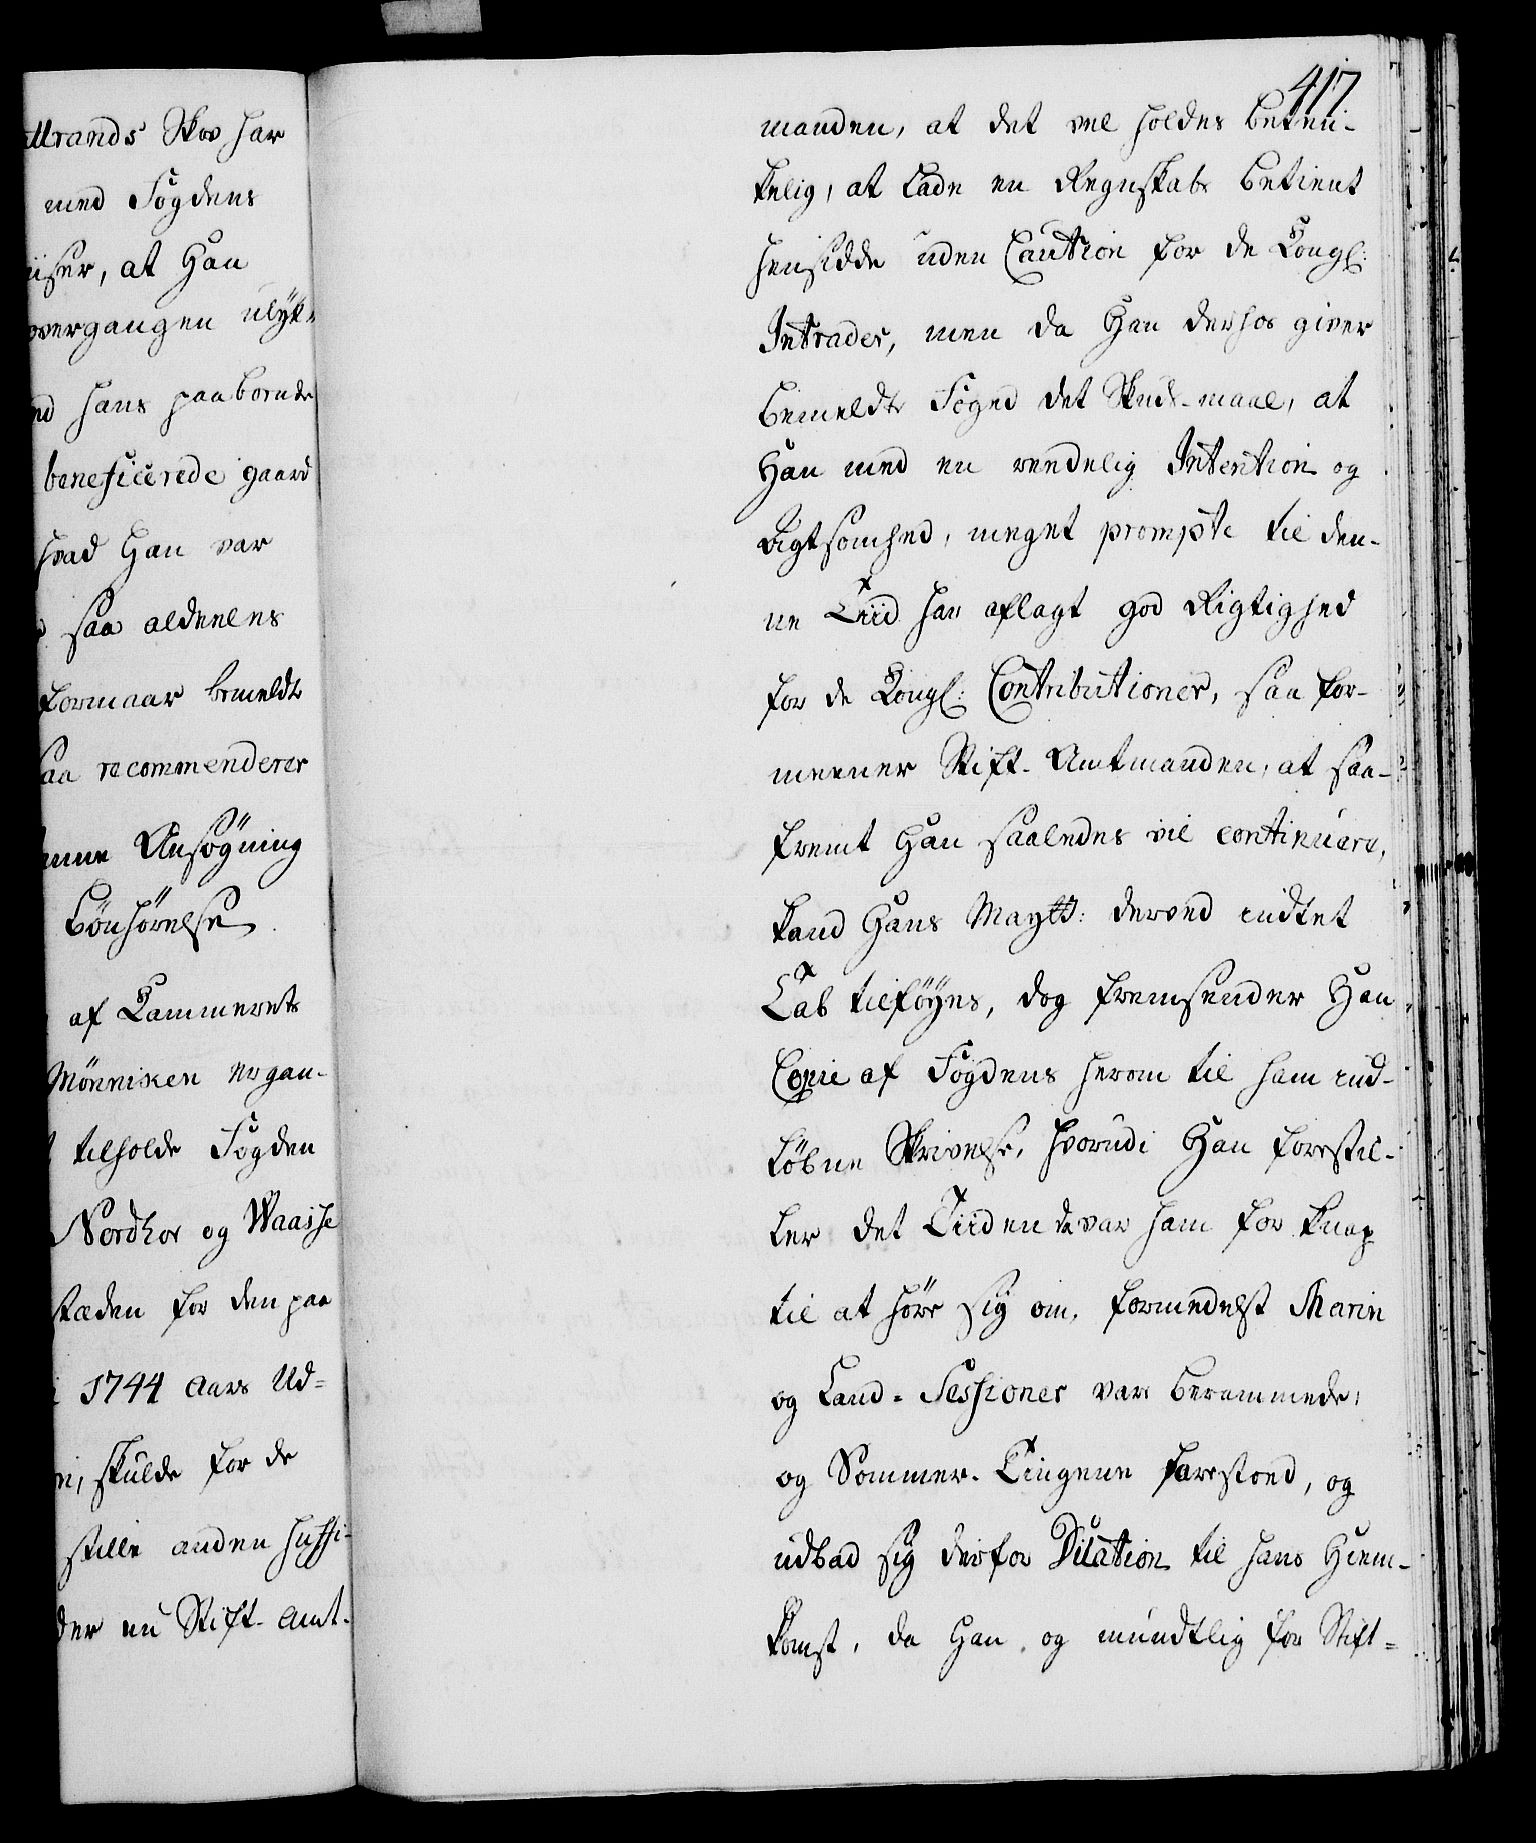 417
trands Skov har
med Fogdens
iiser, at Han
overgangen ulÿk-
hans paaboende
beneficerede gaard
hvad Han var
saa aldeeles
formaar bemeldte
saa recommenderer
Ansøgning
Bønhørelse
af Kammerets
Mönniken ergan-
tilholde Fogden
Nordhor og Waasse
stæden for den paa
1744 Aars Ud=
skulde for de
stille anden suffi-
der nu Stift-Amt-
manden, at det vel holdes beten-
kelig, at lade en Regnskabs betient
hensidde uden Caution for de Kongl:
Intrader, men da Han derhos giver
bemeldte Foged det Skuds-maal, at
Han med en reedelig Intention og
Agtsomhed, meget prompte til den-
ne Tiid har aflagt god Rigtighed
for de Kongl: Contributioner, saa for-
meener Stift-Amtmanden, at saa-
fremt Han saaledes vil continuere,
kand Hans Maytt: derved indtet
Tab tilføyes, dog fremsender Han
Copie af Fogdens herom til ham ind-
løbne Skrivelse, hvorudi Han forestil-
ler det Tiiden da var ham for knap
til at høre sig om, formedelst Marin
og Land-Sessioner var berammede,
og Sommer-Tingene forestoed, og
udbad sig derfor Dilation til hans Hiem-
komst, da Han og mundtlig for Stift=